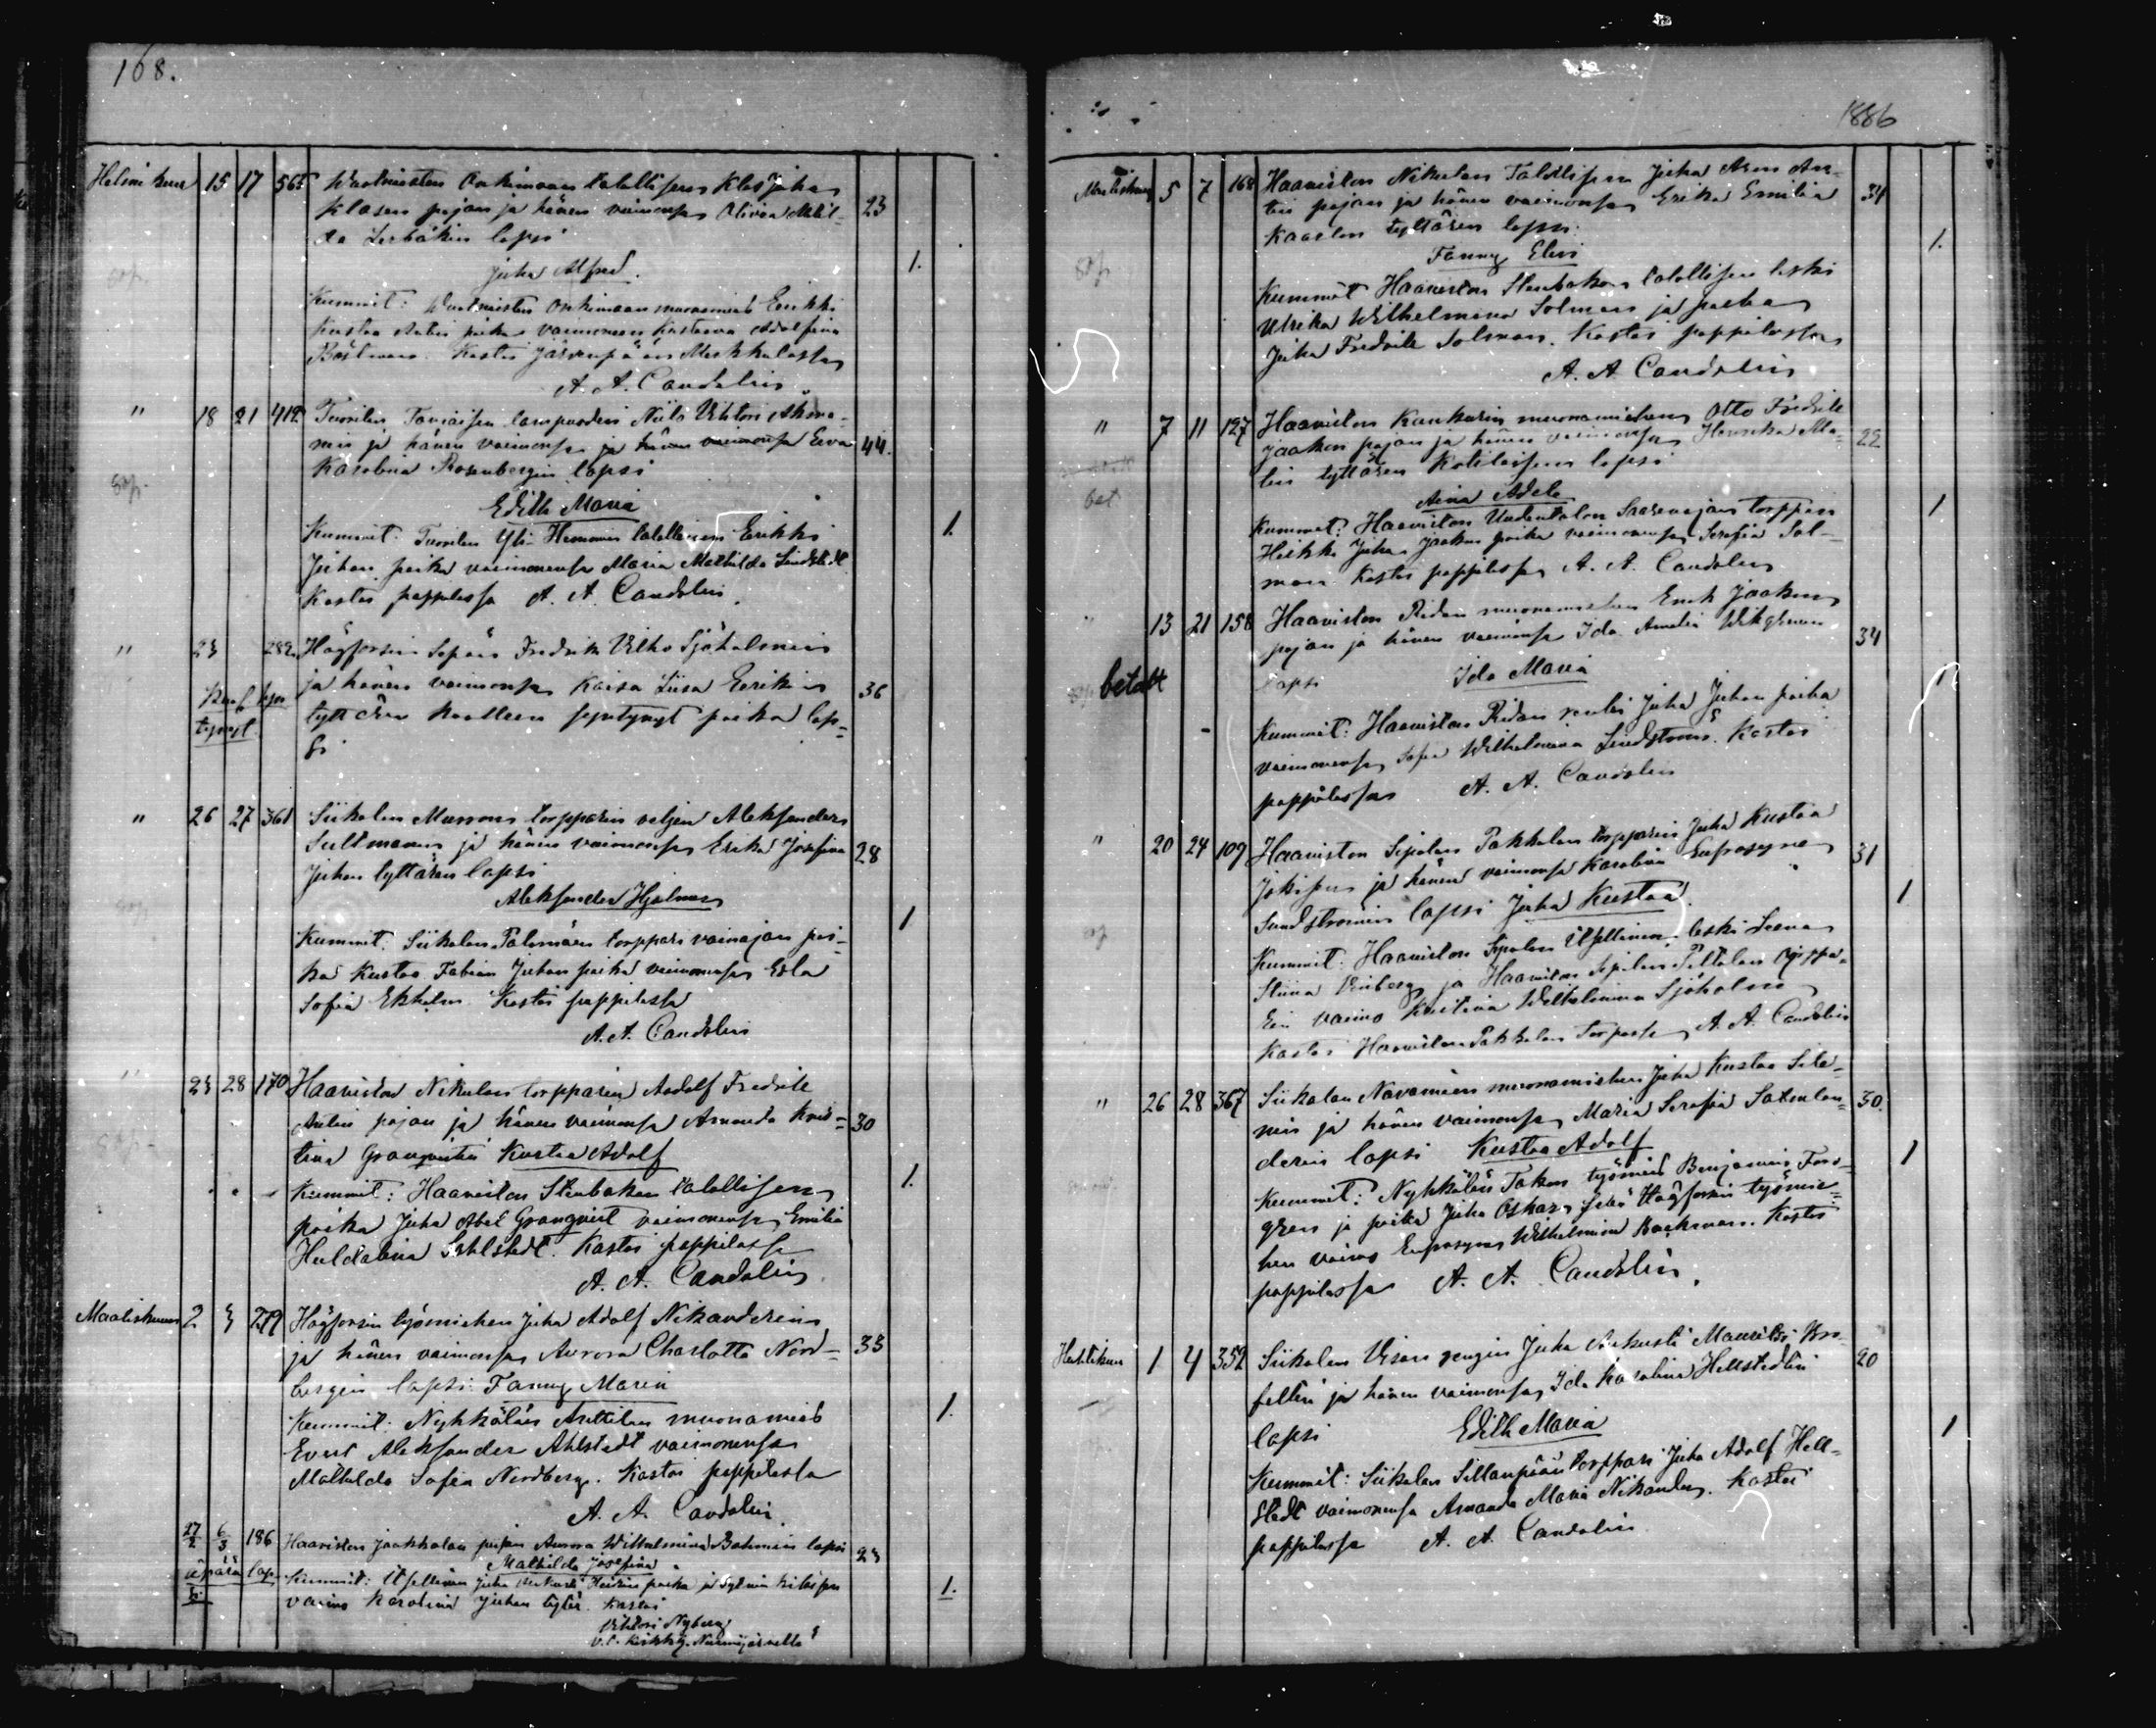 168.
Helmi kuu 15 17 565 Wanhusten Onkimaan talollisen Klas Juha
Klasen pojan ja hänen vaimonsa Olivia Mathil- 23
da lapsi
Juha Alfred. 1.
Kummit: Onkimaan muonamies Eerikki
Kustaa Antin poika vaimoneen Kustaava Adolfina
Kastoi Järvenpään Markkulassa
A. A. Candolin
" 18 21 412 lampuodin Niilo Viktori
min ja hänen vaimonsa ja hänen vaimonsa Eeva 44.
Karolina Rosenbergin lapsi
Edith Maria
Kummit: Yli- talollinen Eerikki 1.
Juhan poika vaimonensa Maria Mathilda Lindstedt
Kastoi pappilassa A. A. Candolin
" 23 282 Högforsin Sepän Fredrik Vilho Sjöholmin
ja hänen vaimonsa Kaisa Liisa Eerikin 36
tyttären kuolleena syntynyt poika lap-
si
" 26 27 361 Siikalan torpparin veljen Aleksander
Sultmanin ja hänen vaimonsa Erika Josefina 28
Juhan tyttären lapsi
Aleksander Hjalmar 1
Kummit: Siikalan Palomäen torppari vainajan poi-
ka Kustaa Fabian Juhan poika vaimonensa Edla
Sofia Ekholm. Kastoi pappilassa
A. A. Candolin
" 23 28 170 Haaviston Nikulan torpparin Aadolf Fredrik
Antin pojan ja hänen vaimonsa Amanda Kris- 30
tina Granqvistin Kustaa Adolf
Kummit: Haaviston Stenbakan talollisen 1.
poika Juha Abel Granqvist vaimonensa Emilia
Huldalina Sahlstedt. Kastoi pappilassa
A. A. Candolin
Maaliskuu 2 3 279 Högforsin työmiehen Juha Adolf Nikanderin
ja hänen vaimonsa Aurora Charlotta Nord- 33
bergin lapsi: Fanny Maria
Kummit: Nyhkälän Anttilan muonamies 1.
Evert Aleksander Ahlstedt vaimonensa
Mathilda Sofia Nordberg. Kastoi pappilassa
A. A. Candolin.
27/2 6/3 186 Haaviston Jaakkolan piijan Aurora Wilhelmina Bohmin lapsi 23
äpärä lap- Mathilda Josefina
si Kummit: Itsellinen Juha Heikin poika ja
vaimo Karolina Juhan tytär. Kastoi 1.
Viktori Nyberg
v.t. kirkkh. Nurmijärvellä
1886
Maaliskuu 5 7 168 Haaviston Nikulan Talollisen Juha Aron An-
tin pojan ja hänen vaimonsa Erika Emilia 34
Kaarlon tyttären lapsi: 1.
Fanny Elin
Kummit Haaviston Stenbakan talollisen leski
Ulrika Wilhelmina Solman ja poika
Juha Fredrik Solman. Kastoi pappilassa
A. A Candolin
" 7 11 127 Haaviston Kankurin muonamiehen Otto Fredrik
Jaakon pojan ja hänen vaimonsa Henrika Ma- 22
tin tyttären Kotilaisen lapsi
bet Aina Adele 1
Kummit: Haaviston Uudentalon torppari
Heikki Juha Jaakon poika vaimonensa Serafia Sol-
man Kastoi pappilassa A. A. Candolin
" 13 21 158 Haaviston Ridan muonamiehen Erik Jaakon
pojan ja hänen vaimonsa Ida Amalia Wikgrenin 34
betalt lapsi Ida Maria 1
Kummit: Haaviston Ridan renki Juha Juhan poika
vaimonensa Sofia Wilhelmina Lindström. Kastoi
pappilassa A. A. Candolin
" 20 24 109 Haaviston Sipilan Pakkalan torpparin Juha Kustaa
Jokisen ja hänen vaimonsa Karolina Eufrosyne 31
Sundströmin lapsi Juha Kustaa. 1
Kummit: Haaviston Sipilan Itsellinen leski Leena
Stiina Vinberg ja Haaviston Sipilan
vaimo Kristiina Wilhelmina Sjöholm
Kastoi Haaviston Pakkalan Torpassa A. A. Candolin
" 26 28 367 Siikalan muonamiehen Juha Kustaa
nin ja hänen vaimonsa Maria Serafia 30.
derin lapsi Kustaa Adolf 1
Kummit: Nyhkälän työmies Benjamin Fors-
gren ja poika Juha Oskar, Högforsin työmie-
hen vaimo Eufrosyne Wilhelmina Backman. Kastoi
pappilassa A. A. Candolin.
Huhtikuu 1 4 352 Siikalan rengin Juha Aukusti Mauritsi
fellin ja hänen vaimonsa Ida Karolina Hellstedtin 20
lapsi Edith Maria 1
Kummit: Siikalan Sillanpään torppari Juha Adolf Hell-
stedt vaimonensa Amanda Maria Nikander. Kastoi
pappilassa A. A. Candolin